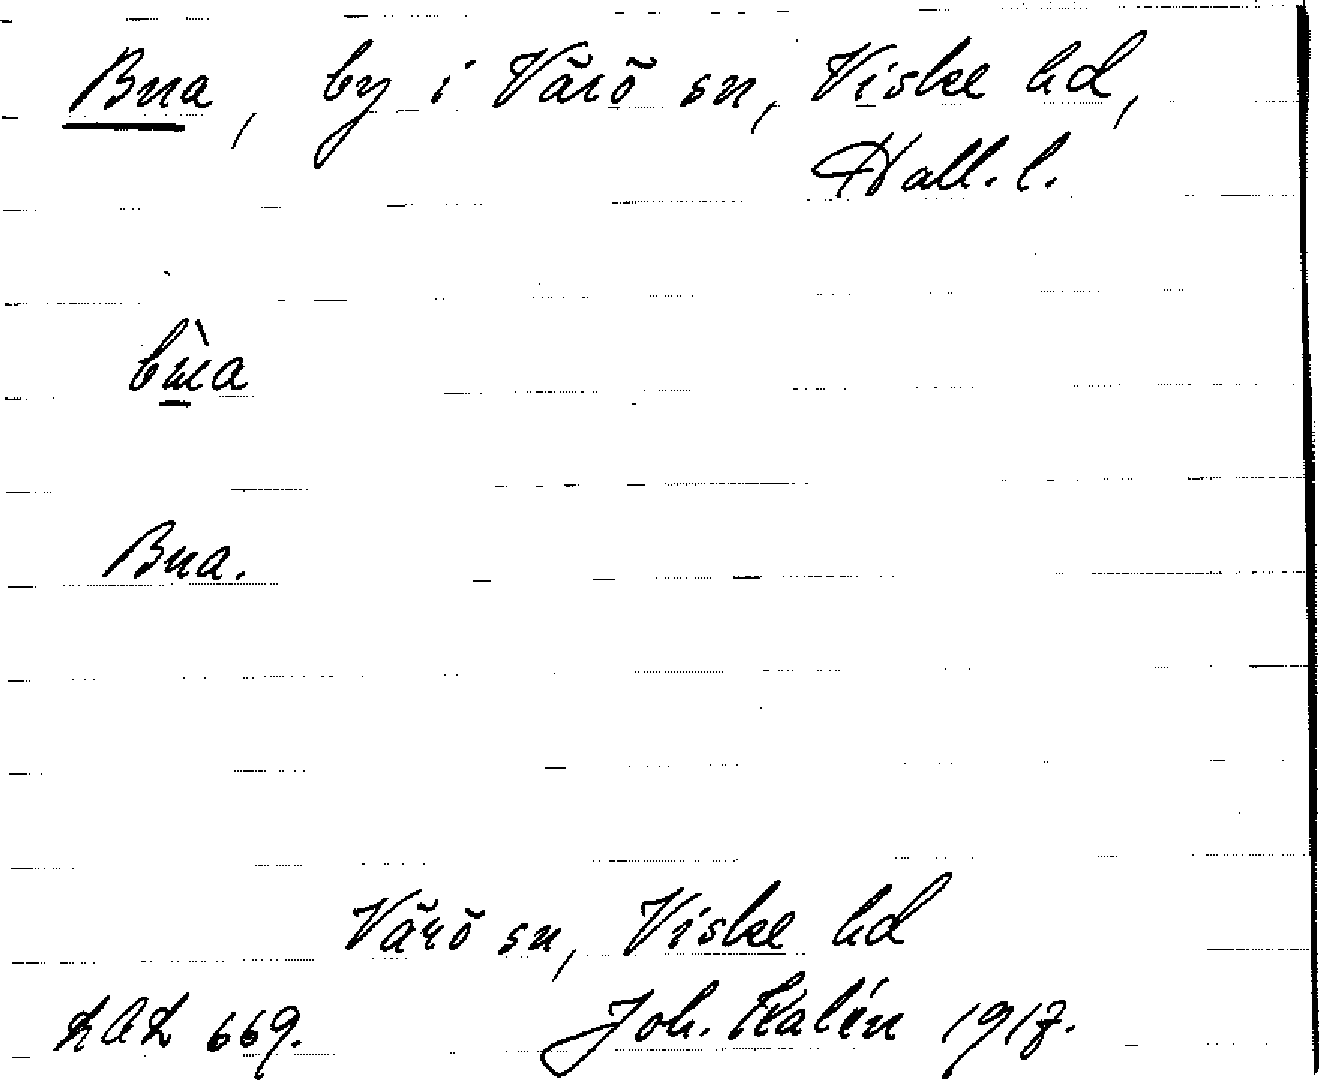 Bua, by i Värö sn, Viske hd,
Hall. l.
bùa
Bua.
Värö sn, Viske hd
LAL 669. Joh. Kalén 1917.